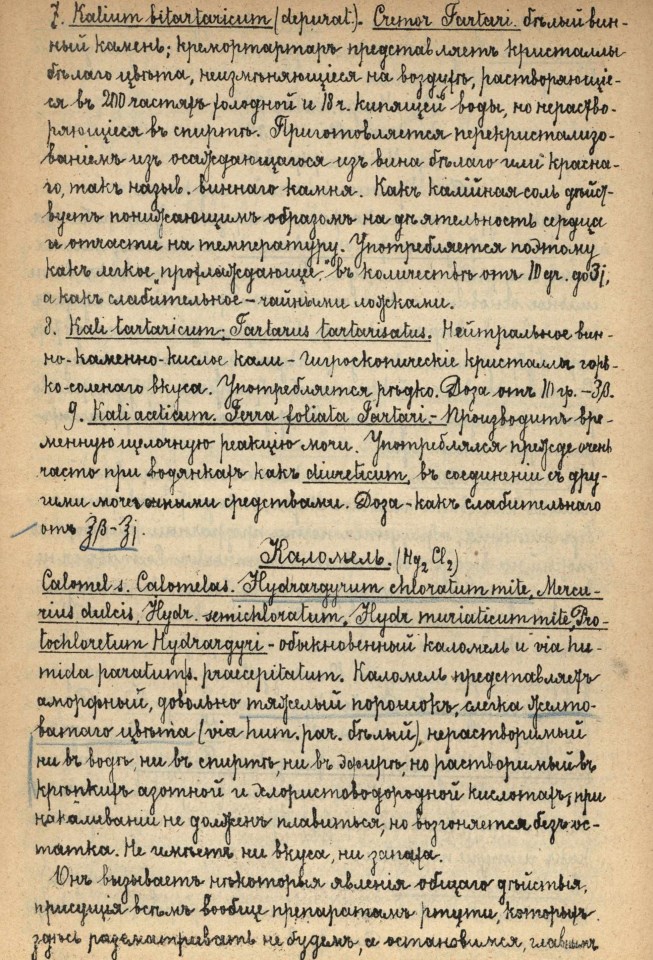 7. Kalium bitartaricum (depurat). Cremor Tartari. бѣлый вин-
ный камень; кремортартаръ представляетъ кристаллы
бѣлаго цвѣта, неизмѣняющіеся на воздухѣ, растворяющіе-
ся въ 200 частяхъ холодной и 18 ч. кипящей воды, но нераство-
ряющіеся въ спиртѣ. Приготовляется перекристализо-
ваніемъ изъ осаждающагося изъ вина бѣлаго или красна-
го, такъ назыв. виннаго камня. Какъ калійная соль дѣйст-
вуетъ понижающимъ образомъ на дѣятельность сердца
и отчасти на температуру. Употребляется поэтому
какъ легкое "прохлаждающее," въ количествѣ отъ 10 gr. до ʒj,
а какъ слабительное – чайными ложками.
8. Kali tartaricum; Tartarus tartarisatus. Нейтральное вин-
но-каменно-кислое кали – гигроскопическіе кристаллы горь-
ко-соленаго вкуса. Употребляется рѣдко. Доза отъ 10 гр. – ʒβ.
9. Kali aceticum. Terra foliata Tartari. – Производитъ вре-
менную щелочную реакцію мочи. Употреблялся прежде очень
часто при водянкахъ какъ diureticum, въ соединеніи съ дру-
гими мочегонными средствами. Доза – какъ слабительнаго
отъ ℥β – ℥j.
Каломель. (Hg₂Cl₂)
Calomel s. Calomelas. Hydrargyrum chloratum mite, Mercu-
rius dulcis, Hydr. semichloratum, Hydr muriaticum mite, Pro-
tochloretum Hydrargyri – обыкновенный каломель и via hu-
mida paratum s. praecepitatum. Каломель представляетъ
аморфный, довольно тяжелый порошокъ, слегка желто-
ватаго цвѣта (via hum. par. бѣлый), нерастворимый
ни въ водѣ, ни въ спиртѣ, ни въ эфирѣ, но растворимый въ
крѣпкихъ азотной и хлористоводородной кислотахъ; при
накаливаніи не долженъ плавиться, но возгоняется безъ ос-
татка. Не имѣетъ ни вкуса, ни запаха.
Онъ вызываетъ нѣкоторыя явленія общаго дѣйствія,
присущія всѣмъ вообще препаратамъ ртути, которыхъ
здѣсь разсматривать не будемъ, а остановимся, главнымъ